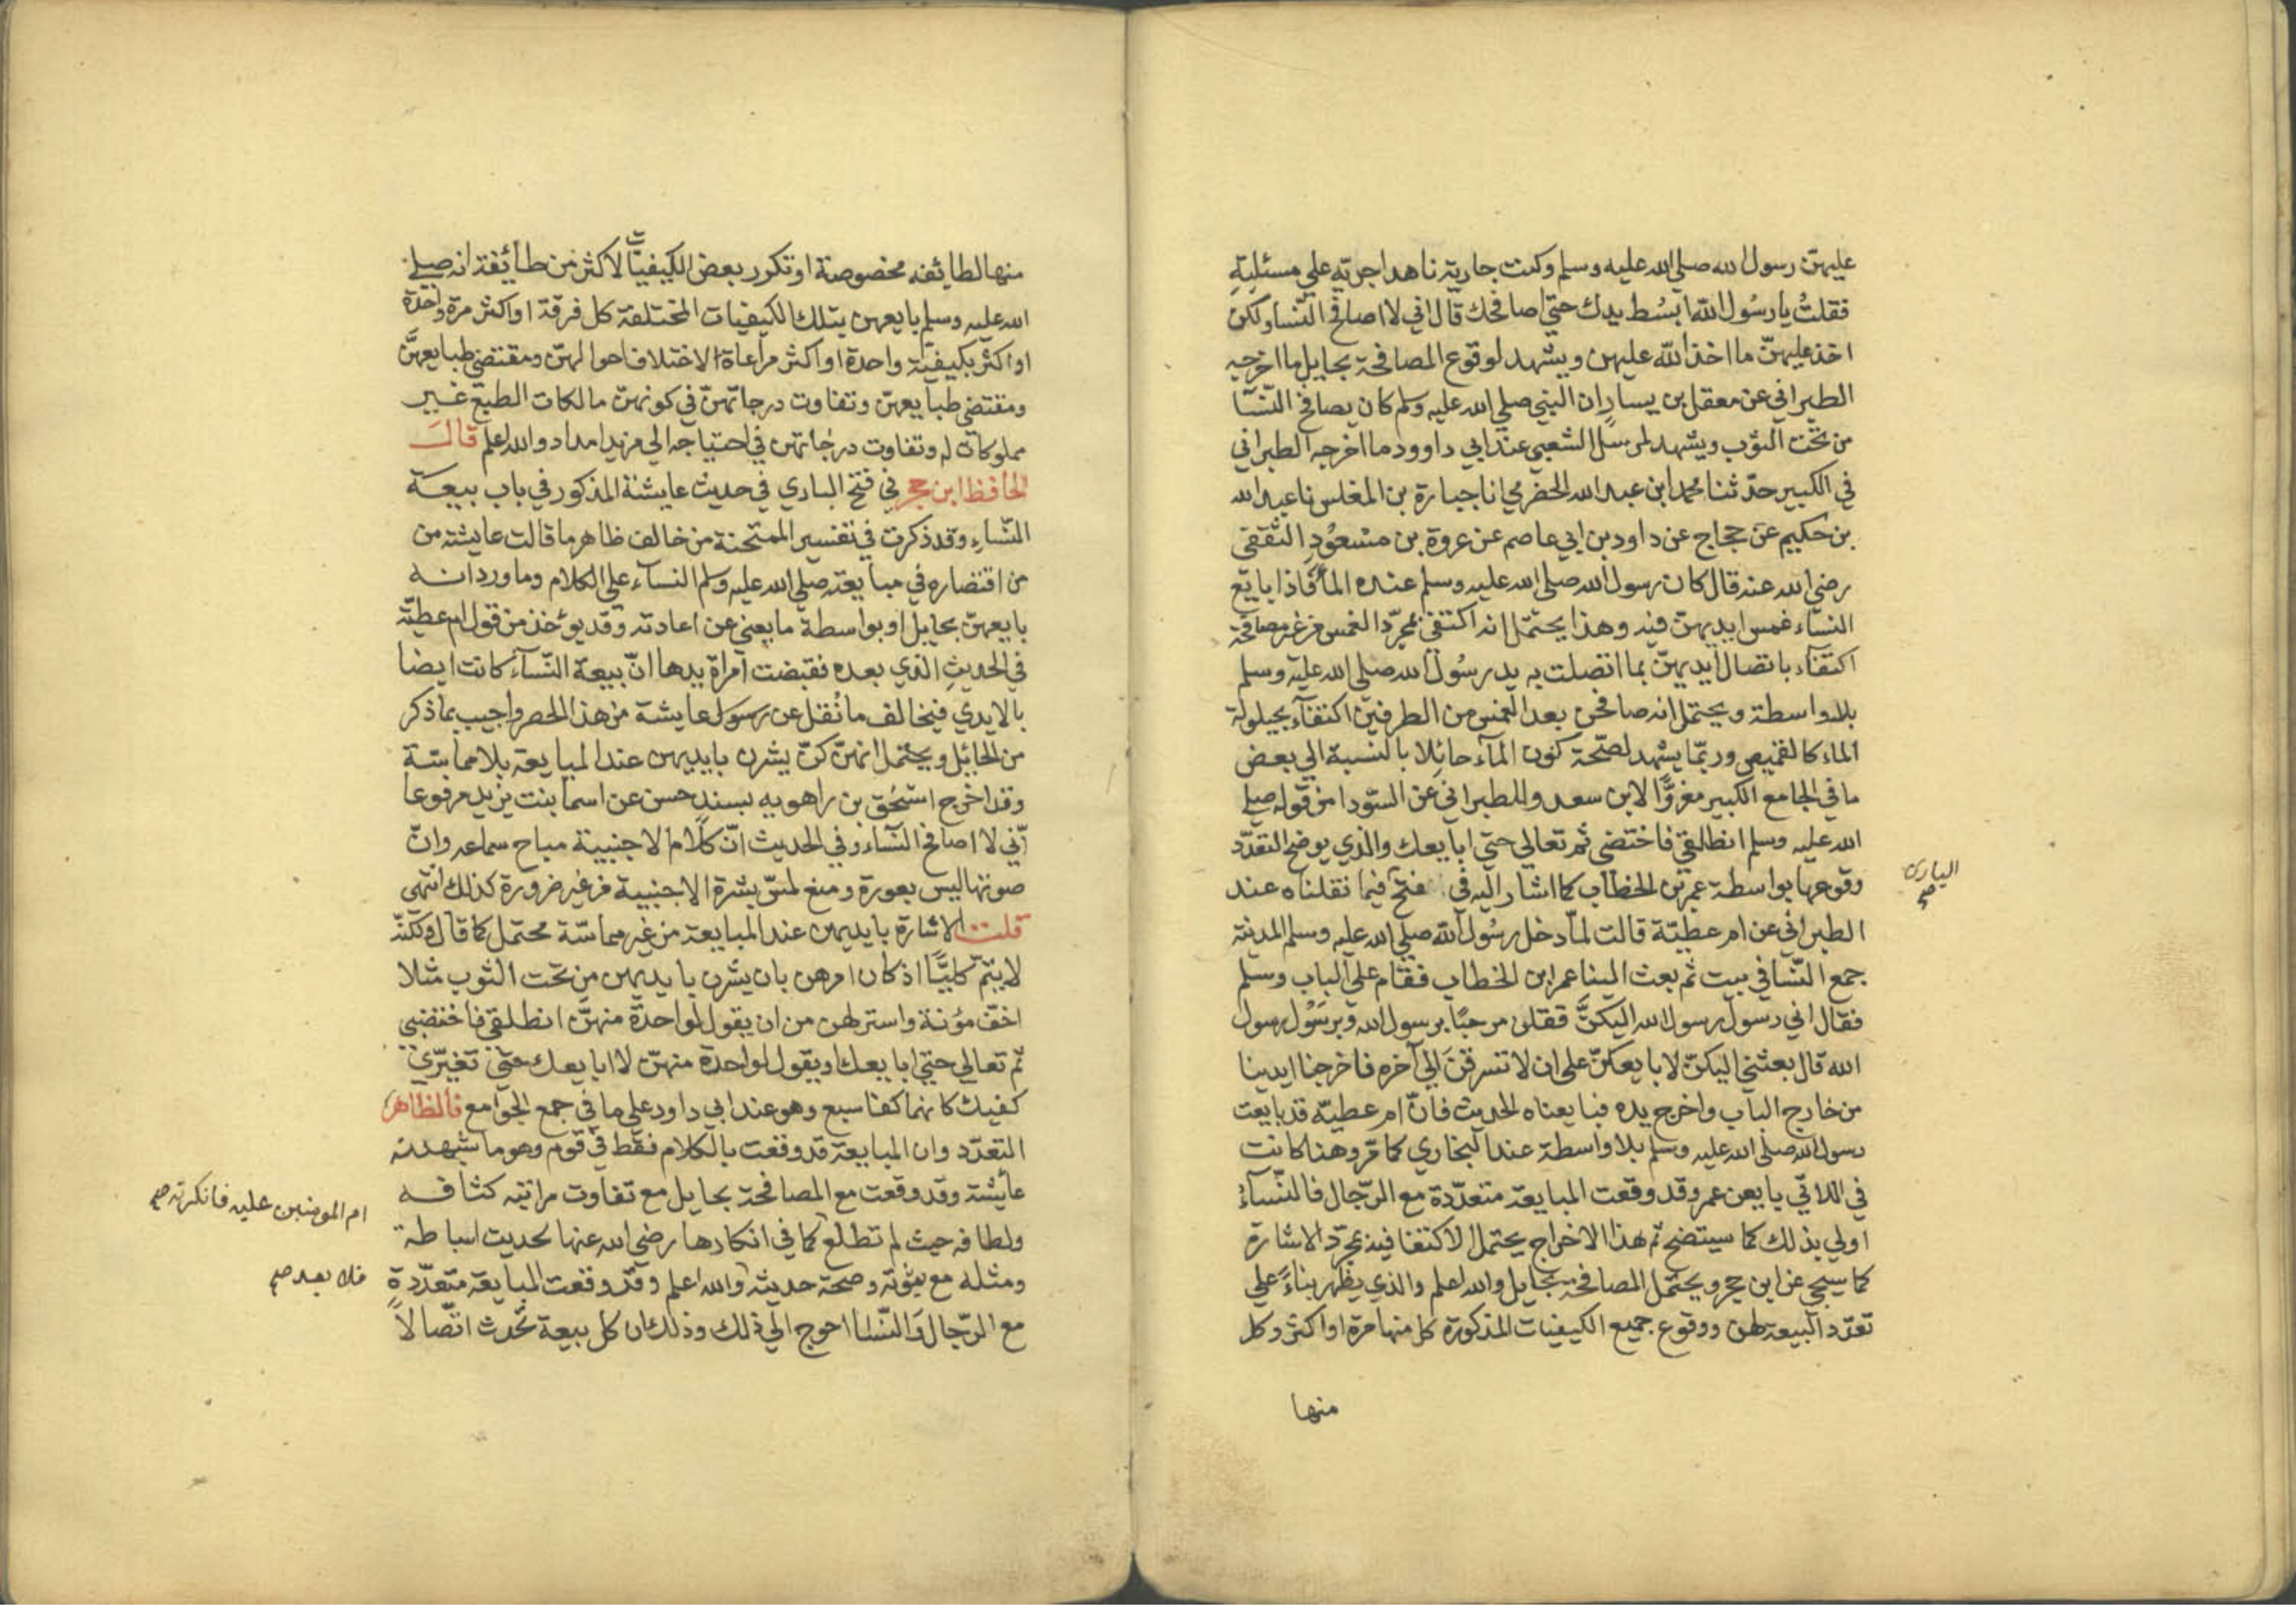 عليهنّ رسول الله صلي الله عليه وسلم وكنت جارية ناهدا جريّة علي مسئليته
فقلتُ يا رسُول الله ابسُط يدك حتي اصافحك قال اني لا اصافح النّسا ولكن
اخذ عليهنّ ما اخذ الله عليهن ويشهد لوقوع المصافحة بحايل ما اخرجه
الطبراني عن معقل بن يسار ان النبي صلي الله عليه وسلم كان يصافح النّسا
من تحت الثوب ويشهد لمرسل الشعبي عند ابي داوود ما اخرجه الطبراني
في الكبير حدّثنا محمد ابن عبد الله الحضرمي انا جبارة بن المغلس نا عبد الله
بن حكيم عن حجاج عن داود بن ابي عاصم عن عروة بن مسْعُودٍ الثقفي
رضي الله عنه قال كان رسول الله صلي الله عليه وسلم عنده الماء فاذا بايع
النسّاء غمس ايديهنّ فيه وهذا يحتمل انه اكتفي بمجرّد الغمس من غير مصافحة
اكتفآء باتصال ايديهنّ بما اتصلت به يد رسُول الله صلي الله عليه وسلم
بلا واسطة ويحتمل انه صافحن بعد الغمس من الطرفين اكتفآء بحيلولة
الماء كالقميص وربّما يشهد لصّحة كون المآء حائلا بالنسبة الي بعض
ما في الجامع الكبير مغزوًّا لابن سعد والطبراني عن السّودا من قوله صلي
الله عليه وسلم انطلقي فاختضبي ثم تعالي حتي ابايعك والذي يوضح التعدّد
وقوعها بواسطة عمر بن الخطاب كما اشار اليه في فتح فيما نقلناه عند
الباري صح
الطبراني عن ام عطيّة قالت لمّا دخل رسُول الله صلي الله عليه وسلم المدينة
جمع النّسا في بيت ثم بعث الينا عمر ابن الخطاب فقام علي الباب وسلم
فقال اني رسول رسول الله اليكنَّ فقلن مرحبًا برسول الله وبرسُول رسول
الله قال بعثني اليكنّ لابايعكنّ علي ان لا تسرقنَ الي آخره فاخرجنا ايدينا
من خارج الباب واخرج يده فبايعناه الحديث فانّ ام عطيّة قد بايعت
رسول الله صلي الله عليه وسلم بلا واسطة عند البخاري كما مرّ وهنا كانت
في اللاتي بايعن عمر وقد وقعت المبايعة متعدّدة مع الرّجال فالنّسآءُ
اولي بذلك كما سيتضح ثم هذا الاخراج يحتمل الاكتفا فيه بمجرّد الاشارة
كما سيجي عن ابن حجر ويحتمل المصافحة بحايل والله اعلم والذي يظهر بناءً علي
تعدّد البيعة لهن ووقوع جميع الكيفيات المذكورة كل منها مرة او اكثر وكل
منها
منها لطايفه مخصوصة او تكرر بعض الكيفيّات لاكثر من طائفة انه صلي
الله عليه وسلم بايعهن بتلك الكيفيات المختلفة كل فرقة او اكثر مرة واحدة
او اكثر بكيفيّة واحدة او اكثر مراعاة لاختلاف احوالهنّ ومقتضي طبايعهنّ
ومقتضي طبايعهنّ وتفاوت درجاتهنّ في كونهنّ مالكات الطبع غير
مملوكات له وتفاوت درجاتهن في احتياجه الي مزيد امداد والله اعلم قال
الحافظ ابن حجر في فتح الباري في حديث عايشة المذكور في باب بيعة
النّساءِ وقد ذكرت في تفسير الممتحنة من خالف ظاهر ما قالت عايشة من
من اقتصاره في مبايعته صلي الله عليه وسلم النسآء علي الكلام وما ورد انه
بايعهنّ بحايل او بواسطة ما يغني عن اعادته وقد يوخذ من قول ام عطيّة
في الحديثِ الذي بعده فقبضت امراة يدها انّ بيعة النّسآء كانت ايضا
بالايدي فيخالف ما نُقل عن رسول عايشة من هذا الحصر واجيب بما ذكر
من الحائل ويحتمل انهنّ كنّ يشرن بايديهن عند المبايعة بلا مماسّة
وقد اخرج اسحٰق بن راهويه بسند حسن عن اسما بنت يزيد مرفوعا
انّي لا اصافح النسآء وفي الحديث انّ كلام الاجنبية مباح سماعه وانّ
صوتها ليس بعورة ومنع لمسّ بشرة الاجنبية من غير ضرورة كذلك انتهي
قلت الاشارة بايديهن عند المبايعة من غير مماسّة محتمل كما قال ولكنّه
لا يتمّ كليًّا اذ كان امرهن بان يشرن بايديهن من تحت الثوب مثلا
اخفّ مؤنة واستر لهن من ان يقول لواحدة منهنّ انطلقي فاختضبي
ثم تعالي حتي ابايعك ويقول لواحدة منهنّ لا ابايعك حتي تغيّري
كفيك كانهما كفا سبع وهو عند ابي داود علي ما في جمع الجوامع فالظاهر
التعدّد وان المبايعة قد وقعت بالكلام فقط في قوم وهو ما شهدته
عائشة وقد وقعت مع المصافحة بحايل مع تفاوت مراتبه كثافه
ولطافه حيث لم تطلع كما في انكارها رضي الله عنها لحديث اسباطة
ام المومنين عليه فانكرته صح
ومثله مع ثبوته وصحة حديثه والله اعلم وقد وقعت المبايعة متعدّدة
فلا بعد صح
مع الرّجال والنّسا احوج الي ذلك وذلك ان كل بيعة تحدث اتّصالاً